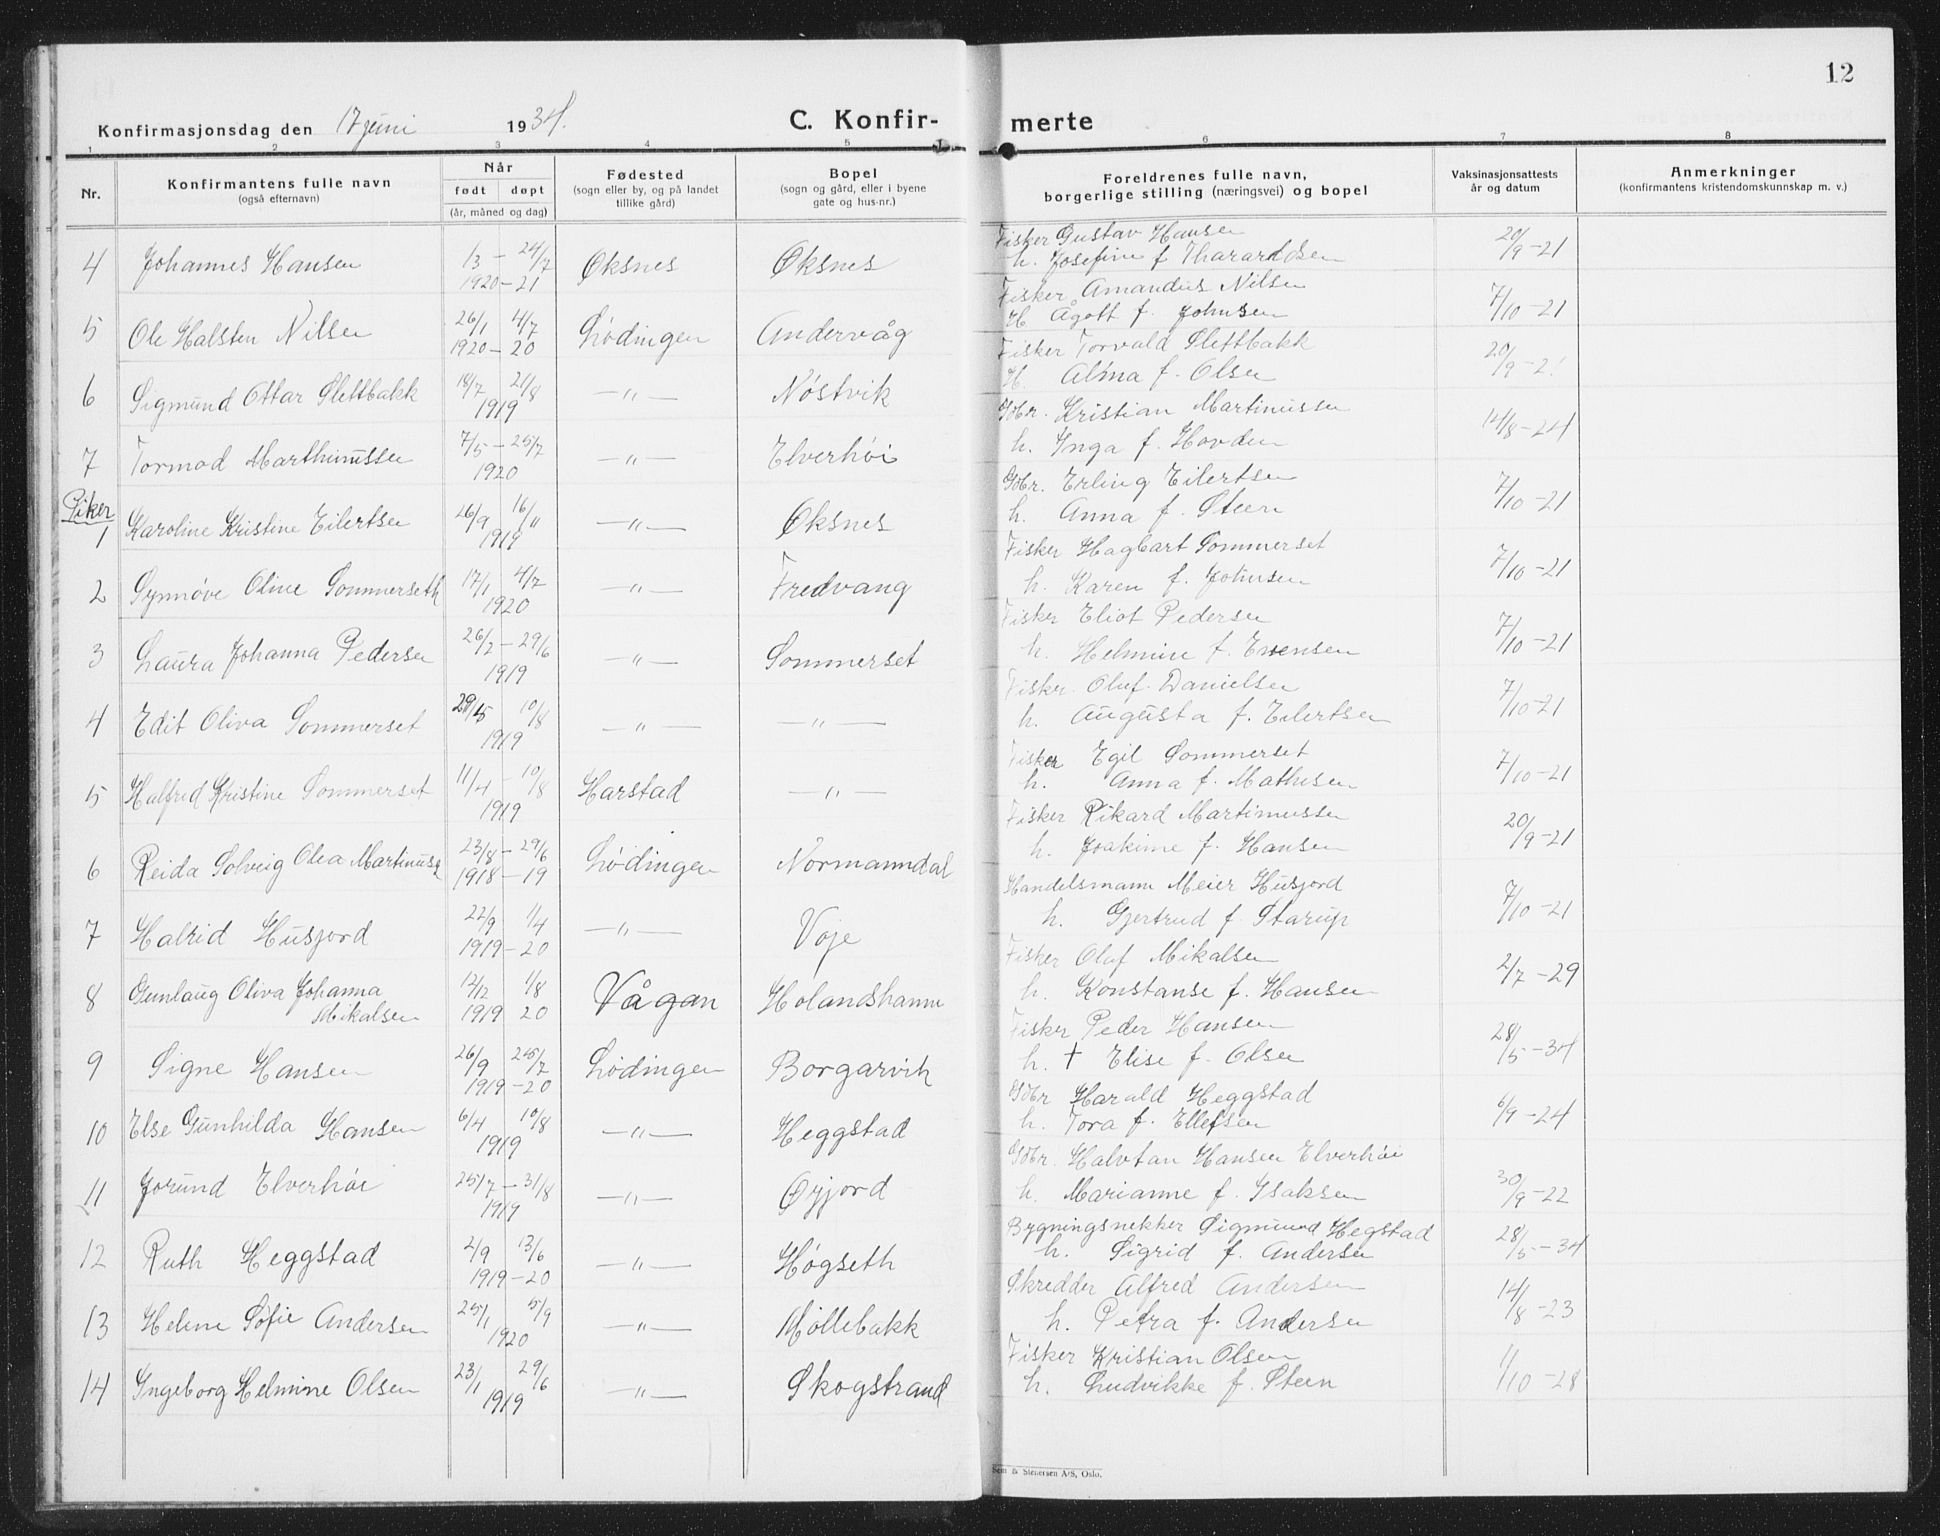 12
Konfirmasjonsdag den 17 juni 1934. C. Konfirmerte
1 2 3 4 5 6 7 8
Nr. Konfirmantens fulle navn (også efternavn) Når født døpt (år, måned og dag) Fødested (sogn eller by, og på landet tillike gård) Bopel (sogn og gård, eller i byene gate og hus-nr.) Foreldrenes fulle navn, borgerlige stilling (næringsvei) og bopel Vaksinasjonsattests år og datum Anmerkninger (konfirmantens kristendomskunnskap m. v.)
4 Johannes Hansen 1/3 – 24/7 1920–21 Øksnes Øksnes Fisker Gustav Hansen 20/9 -21
h. Josefine f Tharardsen
5 Ole Halsten Nilsen 26/1 4/7 1920–20 Lødingen Andervåg Fisker Amandus Nilsen 7/10 -21
H Ågott f. Johnsen
6 Sigmund Ottar Slettbakk 18/7 21/8 1919 —"— Nøstvik Fisker Torvald Slettbakk 20/9 -21
H. Alma f. Olsen
7 Tormod Marthinussen 7/5 – 25/7 1920 —"— Elverhøi Gbr. Kristian Martinussen 14/8 -24
h. Inga f. Hovden
Piker
1 Karoline Kristine Eilertsen 26/9 16/11 1919 —"— Øksnes Gbr. Erling Eilertsen 7/10 -21
h. Anna f. Steen
2 Synnøve Oline Sommerseth 17/1 4/7 1920 —"— Fredvang Fisker Hagbart Sommerset 7/10 -21
h. Karen f. Johnsen
3 Laura Johanna Pedersen 26/2 – 29/6 1919 —"— Sommerset Fisker Eliot Pedersen 7/10 -21
h. Helmine f. Evensen
4 Edit Oliva Sommerset 29/5 10/8 1919 —"— —"— Fisker Oluf Danielsen 7/10 -21
h. Augusta f. Eilertsen
5 Halfred Kristine Sommerset 11/4 – 10/8 1919 Harstad —"— Fisker Egil Sommerset 7/10 -21
h. Anna f. Mathisen
6 Reida Solveig Olea Martinuss 23/8 – 29/6 1918–19 Lødingen Normanndal Fisker Rikard Martinussen 20/9 -21
h. Joakime f. Hansen
7 Halrid Husjord 22/9 1/4 1919–20 —"— Voje Handelsmann Meier Husjord 7/10 -21
h. Gjertrud f. Starup
8 Gunlaug Oliva Johanna 12/12 1/8 1919 20 Vågan Holandshamn Fisker Olaf Mikalsen 2/7 -29
Mikalsen h. Konstanse f. Hansen
9 Signe Hansen 26/9 25/7 1919–20 Lødingen Borgarvik Fisker Peder Hansen 28/5 -34
h. † Elise f. Olsen
10 Else Gunhilda Hansen 6/4 10/8 1919 —"— Heggstad Gbr Harald Heggstad 6/9 -24
h. Tora f. Ellefsen
11 Jorund Elverhøi 25/7 – 31/8 1919 —"— Øyjord Gbr. Halvtan Hansen Elverhøi 30/9 -22
h. Marianne f. Isaksen
12 Ruth Heggstad 2/9 13/6 1919–20 —"— Høgseth Bygningsnekker Sigmund Hegstad 28/5 -34
h. Sigrid f. Andersen
13 Helene Sofie Andersen 25/1 5/9 1920 —"— Møllebakk Skredder Alfred Andersen 14/8 -23
h. Petra f. Andersen
14 Ingeborg Helmine Olsen 23/1 29/6 1919 —"— Skogstrand Fisker Kristian Olsen 11/10 -28
h. Ludvikke f. Steen
Sem & Stenersen A/S, Oslo.